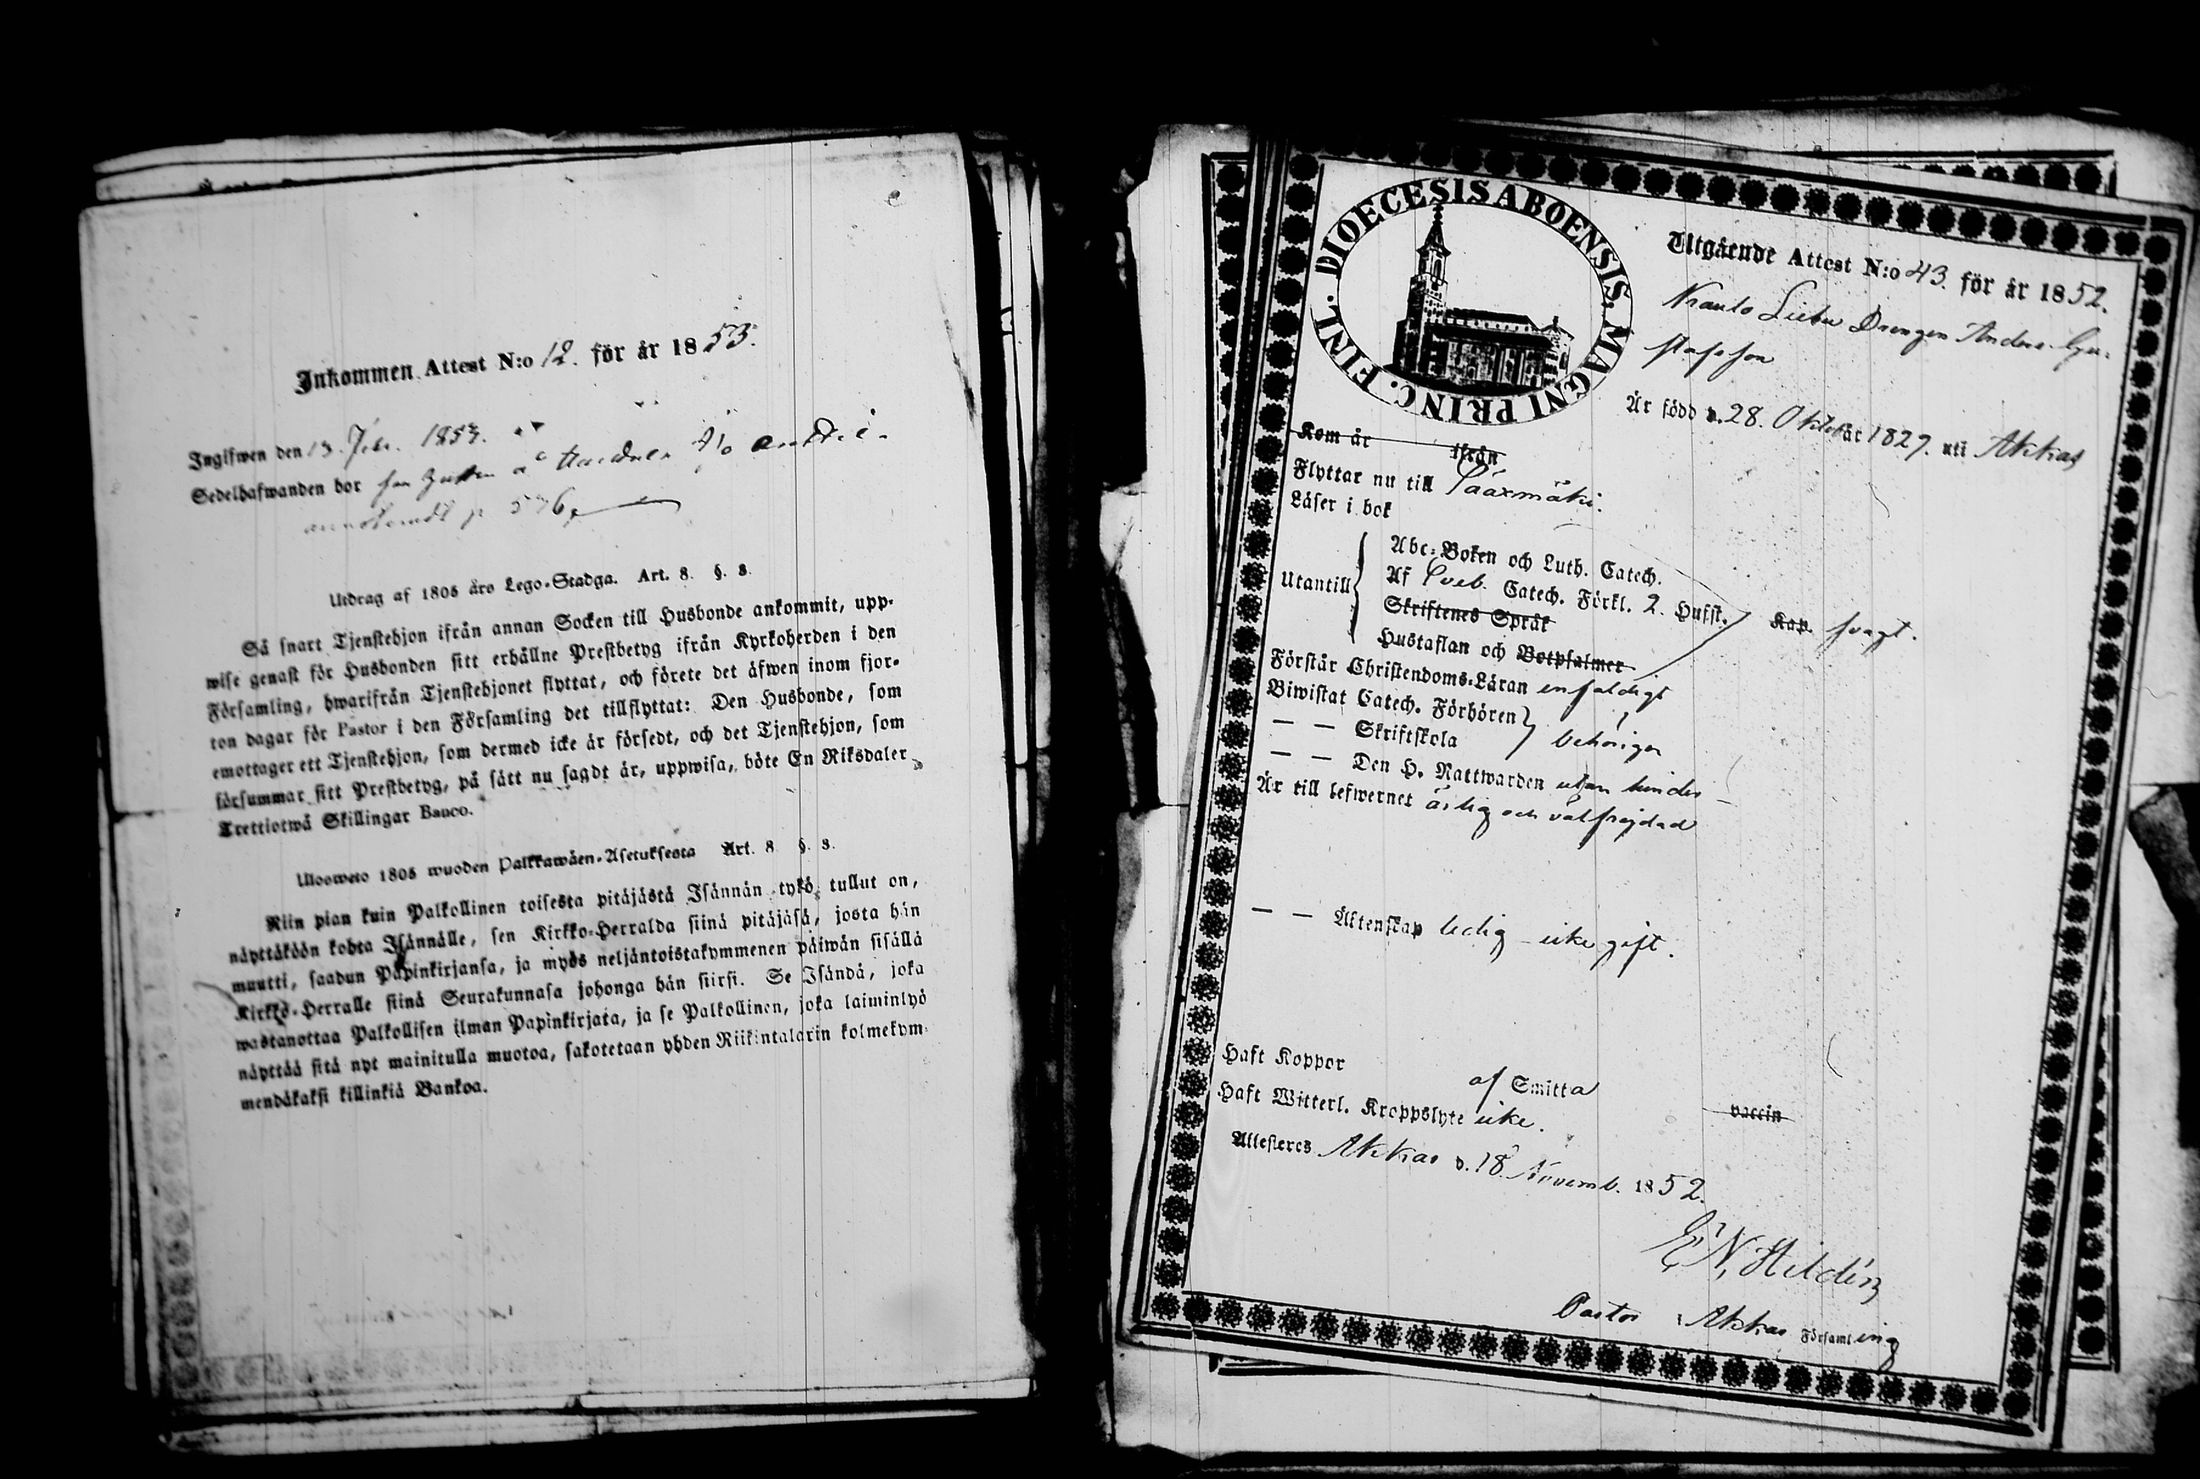 Inkommen Attest N:o 12. för år 1853.
Ingifwen den 13. Febr. 1853.
Sedelhafwanden bor
p 536
Utdrag af 1805 års Lego-Stadga. Art. 8. §. 3.
Så snart Tjenstehjon ifrån annan Socken till Husbonde ankommit, upp-
wise genast för Husbonden sitt erhållne Prestbetyg ifrån Kyrkoherden i den
Församling, hwarifrån Tjenstehjonet flyttat, och förete det äfwen inom fjor-
ton dagar för Pastor i den Församling det tillflyttat: Den Husbonde, som
emottager ett Tjenstehjon, som dermed icke är försedt, och det Tjenstehjon, som
försummar sitt Prestbetyg, på sätt nu sagdt är, uppwisa, böte En Riksdaler
Trettiotwå Skillingar Banco.
Ulosweto 1805 wuoden Palkkawäen-Asetuksesta Art. 8 §. 3.
Niin pian kuin Palkollinen toisesta pitäjästä Isännän tykö tullut on,
näyttäköön kohta Isännälle, sen Kirkko-Herralda siinä pitäjäsä, josta hän
muutti, saadun Papinkirjansa, ja myös neljäntoistakymmenen päiwän sisällä
Kirkko-Herralle siinä Seurakunnasa johonga hän siirsi. Se Isändä, joka
wastanottaa Palkollisen ilman Papinkirjata, ja se Palkollinen, joka laiminlyö
näyttää sitä nyt mainitulla muotoa, sakotetaan yhden Riikintalarin kolmekym-
mendäkaksi killinkiä Bankoa.
DIOECESIS ABOENSIS. MAGNI PRINC. FINL.
Utgående Attest N:o 43. för år 1852.
Drengen Anders Gu-
stafsson
Är född d. 28. Oktob år 1829. uti Akkas
Kom år ifrån
Flyttar nu till Sääxmäki.
Läser i bok
Utantill
Abc-Boken och Luth. Catech.
Af Sveb. Catech. Förkl. 2. Husst.
Skriftenes Språk
Hustaflan och Botpsalmer
Kap. svagt.
Förstår Christendoms-Läran enfaldigt
Biwistat Catech. Förhören
— — Skriftskola behörigen
— — Den H. Nattwarden utan hinder
Är till lefwernet ärlig och välfrejdad
— — Äktenskap ledig icke gift.
Haft Koppor af Smitta vaccin
Haft Witterl. Kroppslyte icke.
Attesteres Akkas d. 18. Novemb. 1852.
E N Hildén
Pastor i Akkas Församling